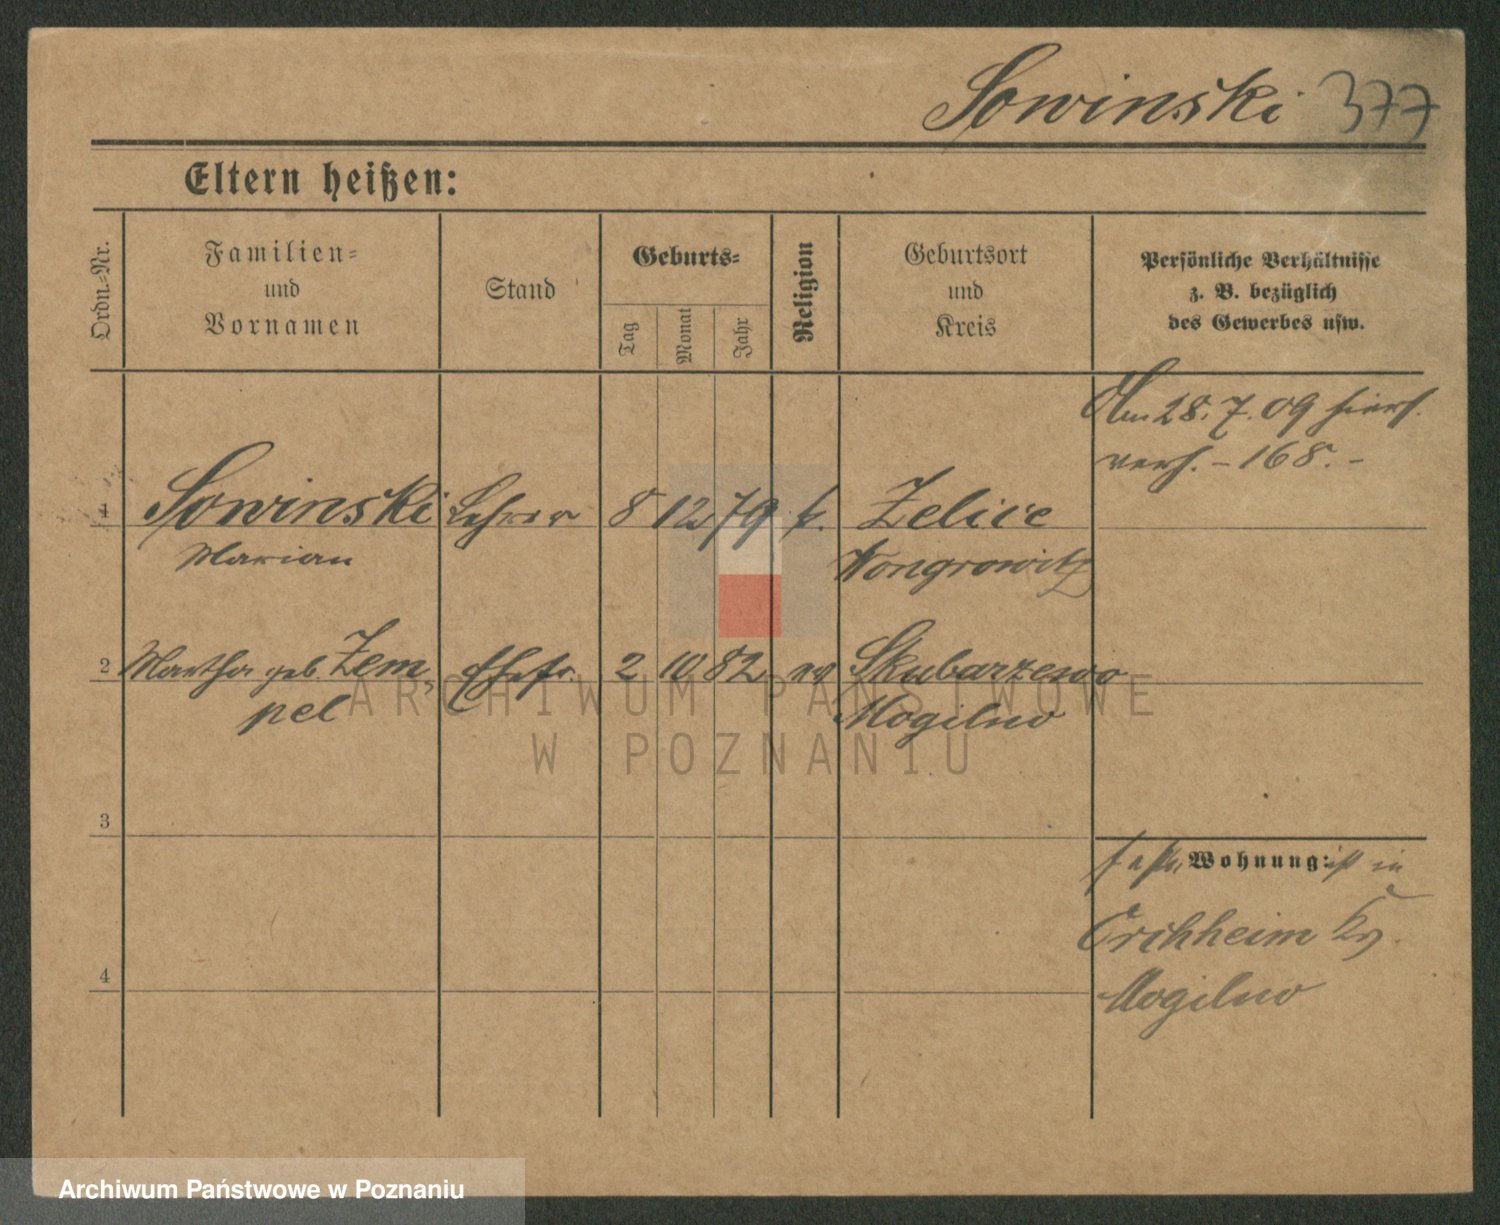 Sowinski 377
Eltern heißen:
Ordn.-Nr.
Familien-
und
Vornamen
Stand
Geburts-
Tag
Monat
Jahr
Religion
Geburtsort
und
Kreis
Persönliche Verhältnisse
z. B. bezüglich
des Gewerbes usw.
Am 28. 7. 09 hierh.
verh. - 168. -
1 Sowinski Lehrer 8 12 79 k. Zelice
Marian Wongrowitz
2 Martha geb. Zem- Ehefr. 2 10 82 ev Skubarzewo
pel Mogilno
3
Wohnung: ist in
Orchheim Kr.
4
Mogilno
ARCHIWUM PAŃSTWOWE
W POZNANIU
Archiwum Państwowe w Poznaniu